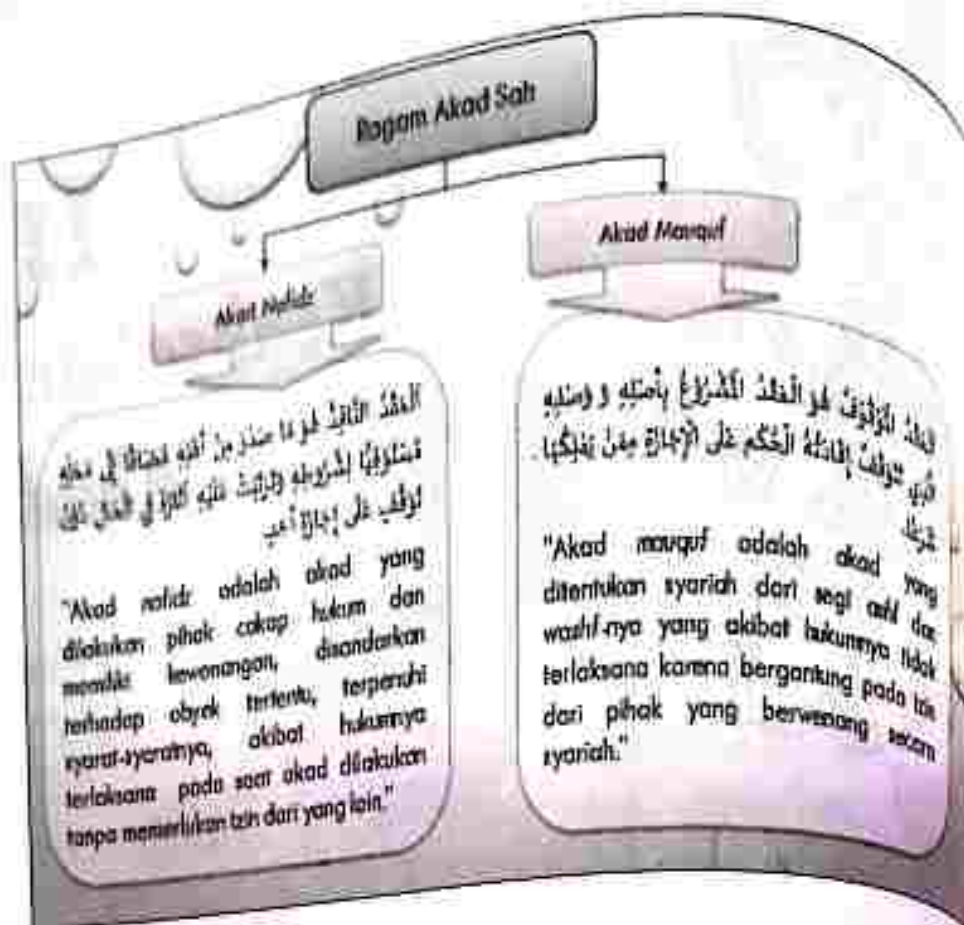 Ragam Akad Sah
Akad Nafidz
اَلْعَقْدُ النَّافِذُ هُوَ مَا صَدَرَ مِنْ أَهْلِهِ مُضَافًا إِلَى مَحَلِّهِ
مُسْتَوْفِيًا لِشُرُوْطِهِ وَتَرَتَّبَتْ عَلَيْهِ آثَارُهُ فِي الْحَالِ دُوْنَ
تَوَقُّفٍ عَلَى إِجَازَةِ أَحَدٍ
"Akad nafidz adalah akad yang
dilakukan pihak cakap hukum dan
memiliki kewenangan, disandarkan
terhadap obyek tertentu, terpenuhi
syarat-syaratnya, akibat hukumnya
terlaksana pada saat akad dilakukan
tanpa memerlukan izin dari yang lain."
Akad Mauquf
اَلْعَقْدُ الْمَوْقُوْفُ هُوَ الْعَقْدُ الْمَشْرُوْعُ بِأَصْلِهِ وَ وَصْفِهِ
الَّذِي تَتَوَقَّفُ إِفَادَتُهُ الْحُكْمَ عَلَى الْإِجَازَةِ مِمَّنْ يَمْلِكُهَا
شَرْعًا
"Akad mauquf adalah akad yang
ditentukan syariah dari segi ashl dan
washf-nya yang akibat hukumnya tidak
terlaksana karena bergantung pada izin
dari pihak yang berwenang secara
syariah."